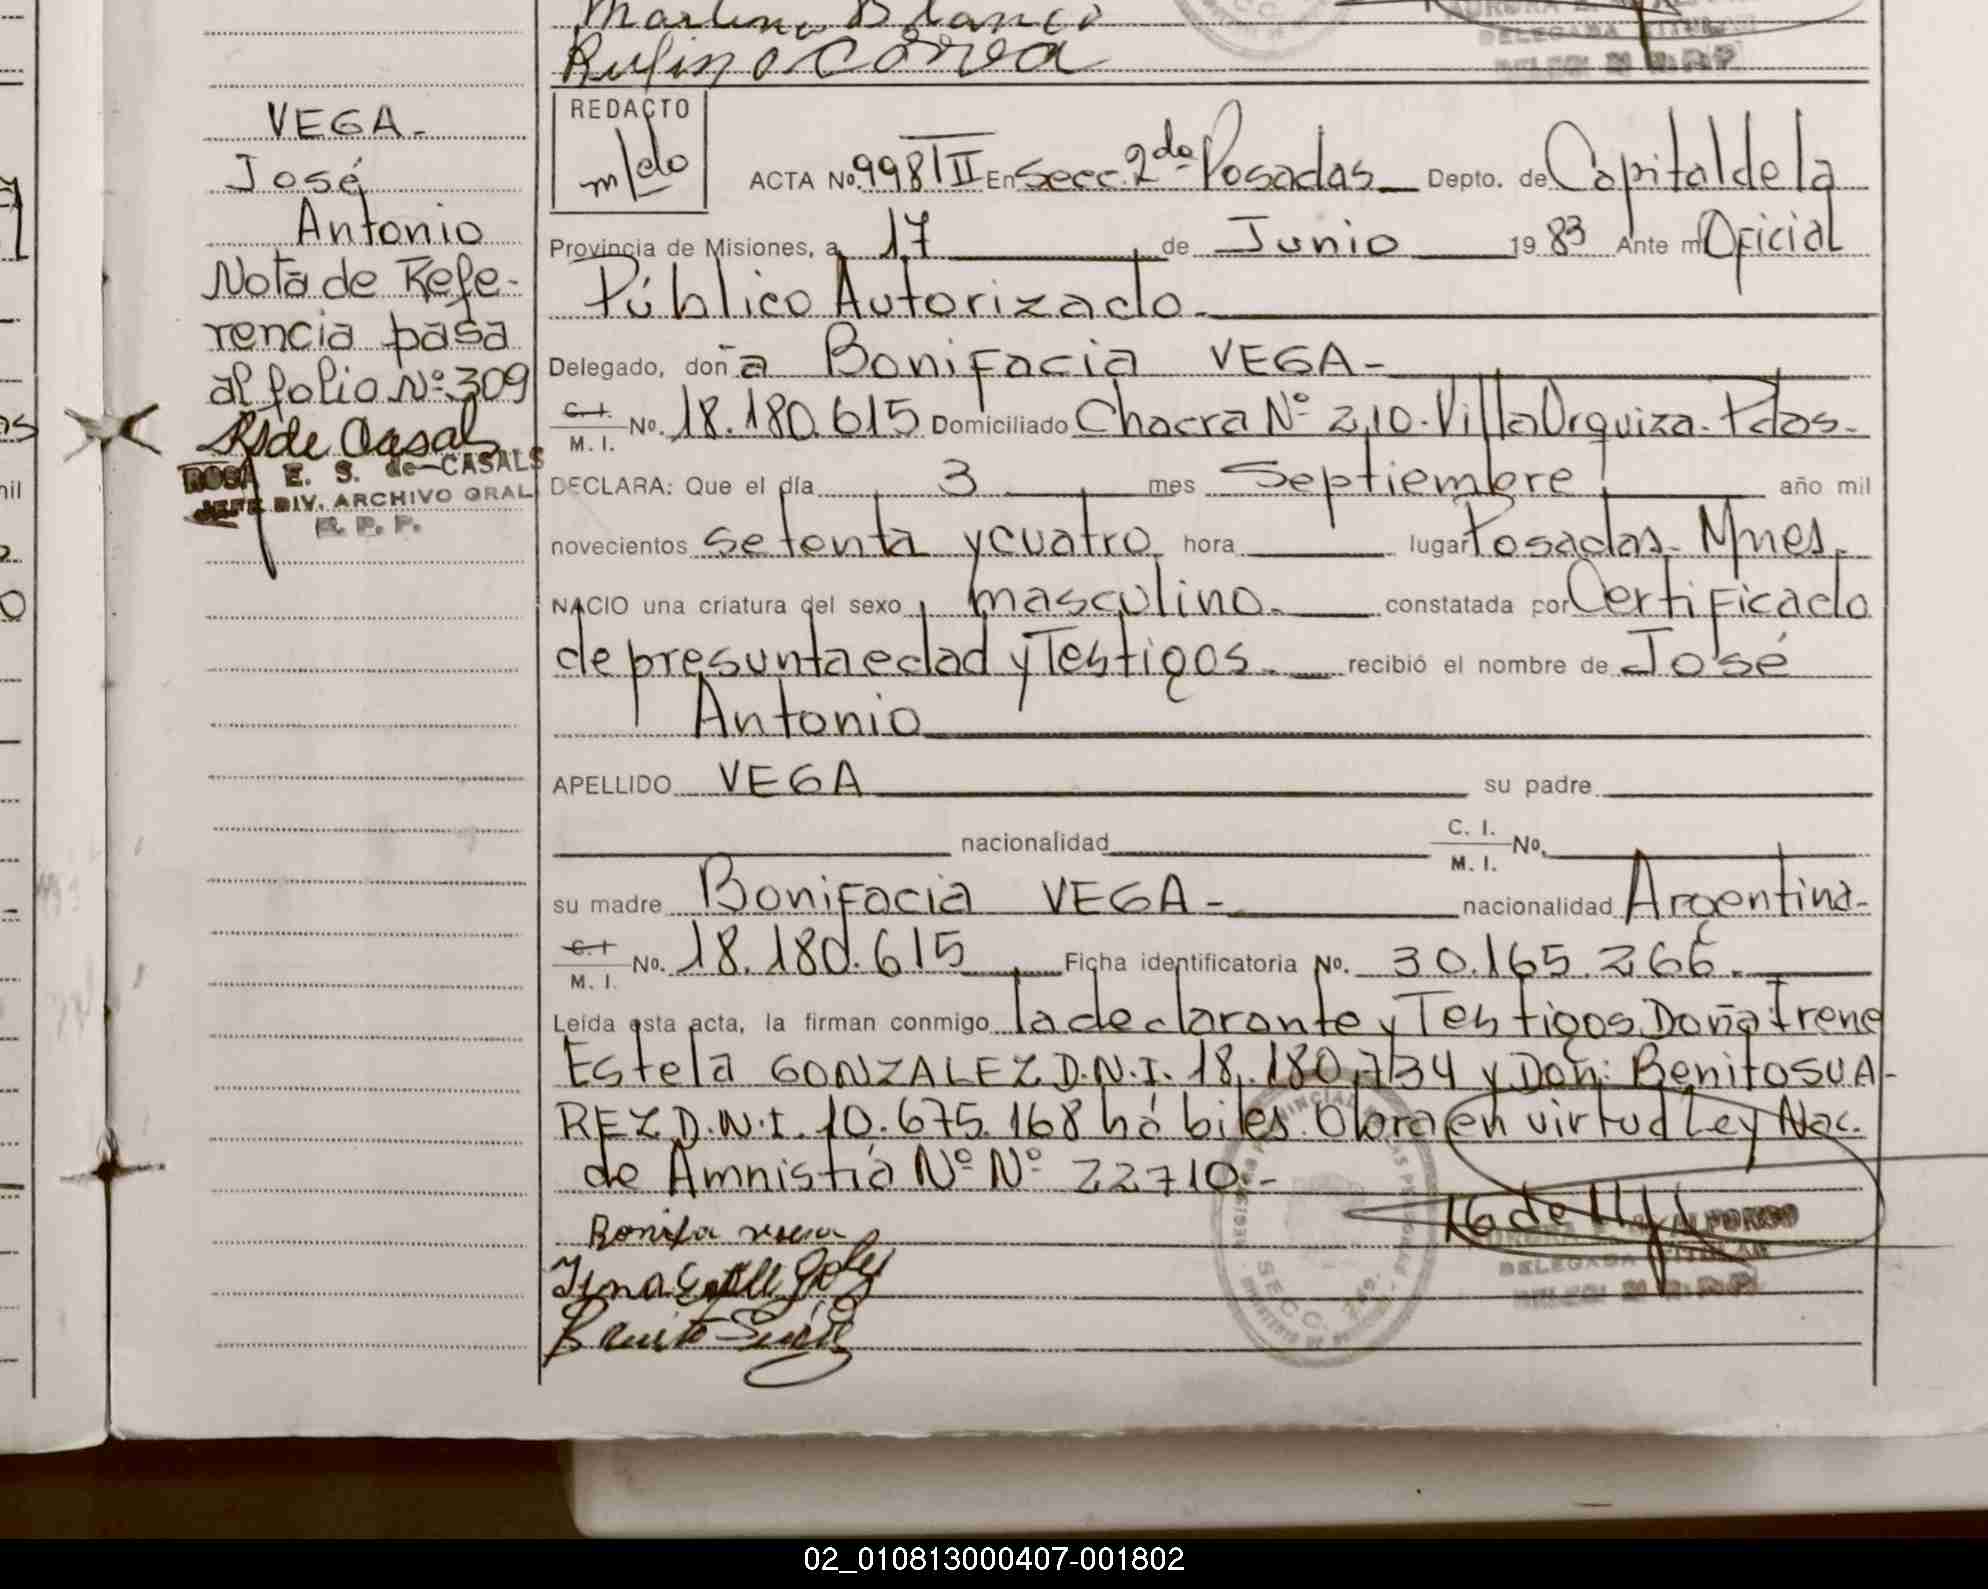 Rufino Correa
VEGA-
José
Antonio
Nota de Refe-
rencia pasa
al folio Nº 309
R S de Casals
ROSA E. S. de CASALS
JEFE DIV. ARCHIVO GRAL
R. P. P.
REDACTO
ACTA No. 998 TII En Secc. 2da Posadas_ Depto. de Capital de la
Provincia de Misiones, a 17 de Junio 19 83 Ante mi Oficial
Público Autorizado.
Delegado, doña Bonifacia VEGA-
C. I.
M. I. No. 18.180.615 Domiciliado Chacra Nº 210. Villa Urquiza. Pdas.
DECLARA: Que el día 3 mes Septiembre año mil
novecientos setenta y cuatro hora lugar Posadas. Mnes.
NACIO una criatura del sexo masculino. constatada por Certificado
de presunta edad y Testigos. recibió el nombre de José
Antonio
APELLIDO VEGA su padre
nacionalidad C. I.
M. I. No.
su madre Bonifacia VEGA- nacionalidad Argentina-
C. I
M. I. No. 18.180.615 Ficha identificatoria No. 30.165.266.
Leída esta acta, la firman conmigo la declarante y Testigos Doña Irene
Estela GONZALEZ D.N.I. 18.180.734 y Don: Benito SUA-
REZ D.N.I. 10.675.168 hábiles. Obra en virtud Ley Nac.
de Amnistia Nº Nº 22710.-
Benito Suárez
DELEGADA TITULAR
SECC. 2da.
02_010813000407-001802